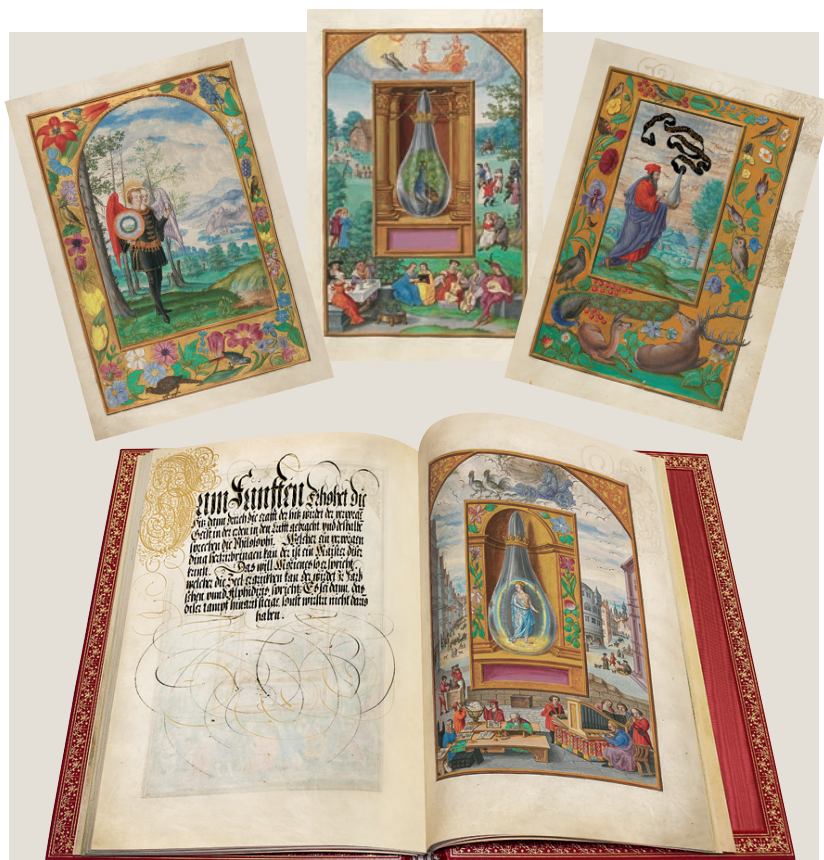 Zum Fünfften Erhöhet die
Hitz damit durch die crafft der hitz würdet der
Geist in der erden in den Lufft gebracht unnd
sprechen die Philosophi. Welcher ein verporgen
ding herfürbringen kan der ist ein Maister diser
kunst. Das will Morienes so er spricht,
welcher die Seel kan der würdet ir Farb
sehen, unnd Alphidius, spricht, Es sei dann, das
diser tampf hinauf steige, sonst wirstu nicht
haben.